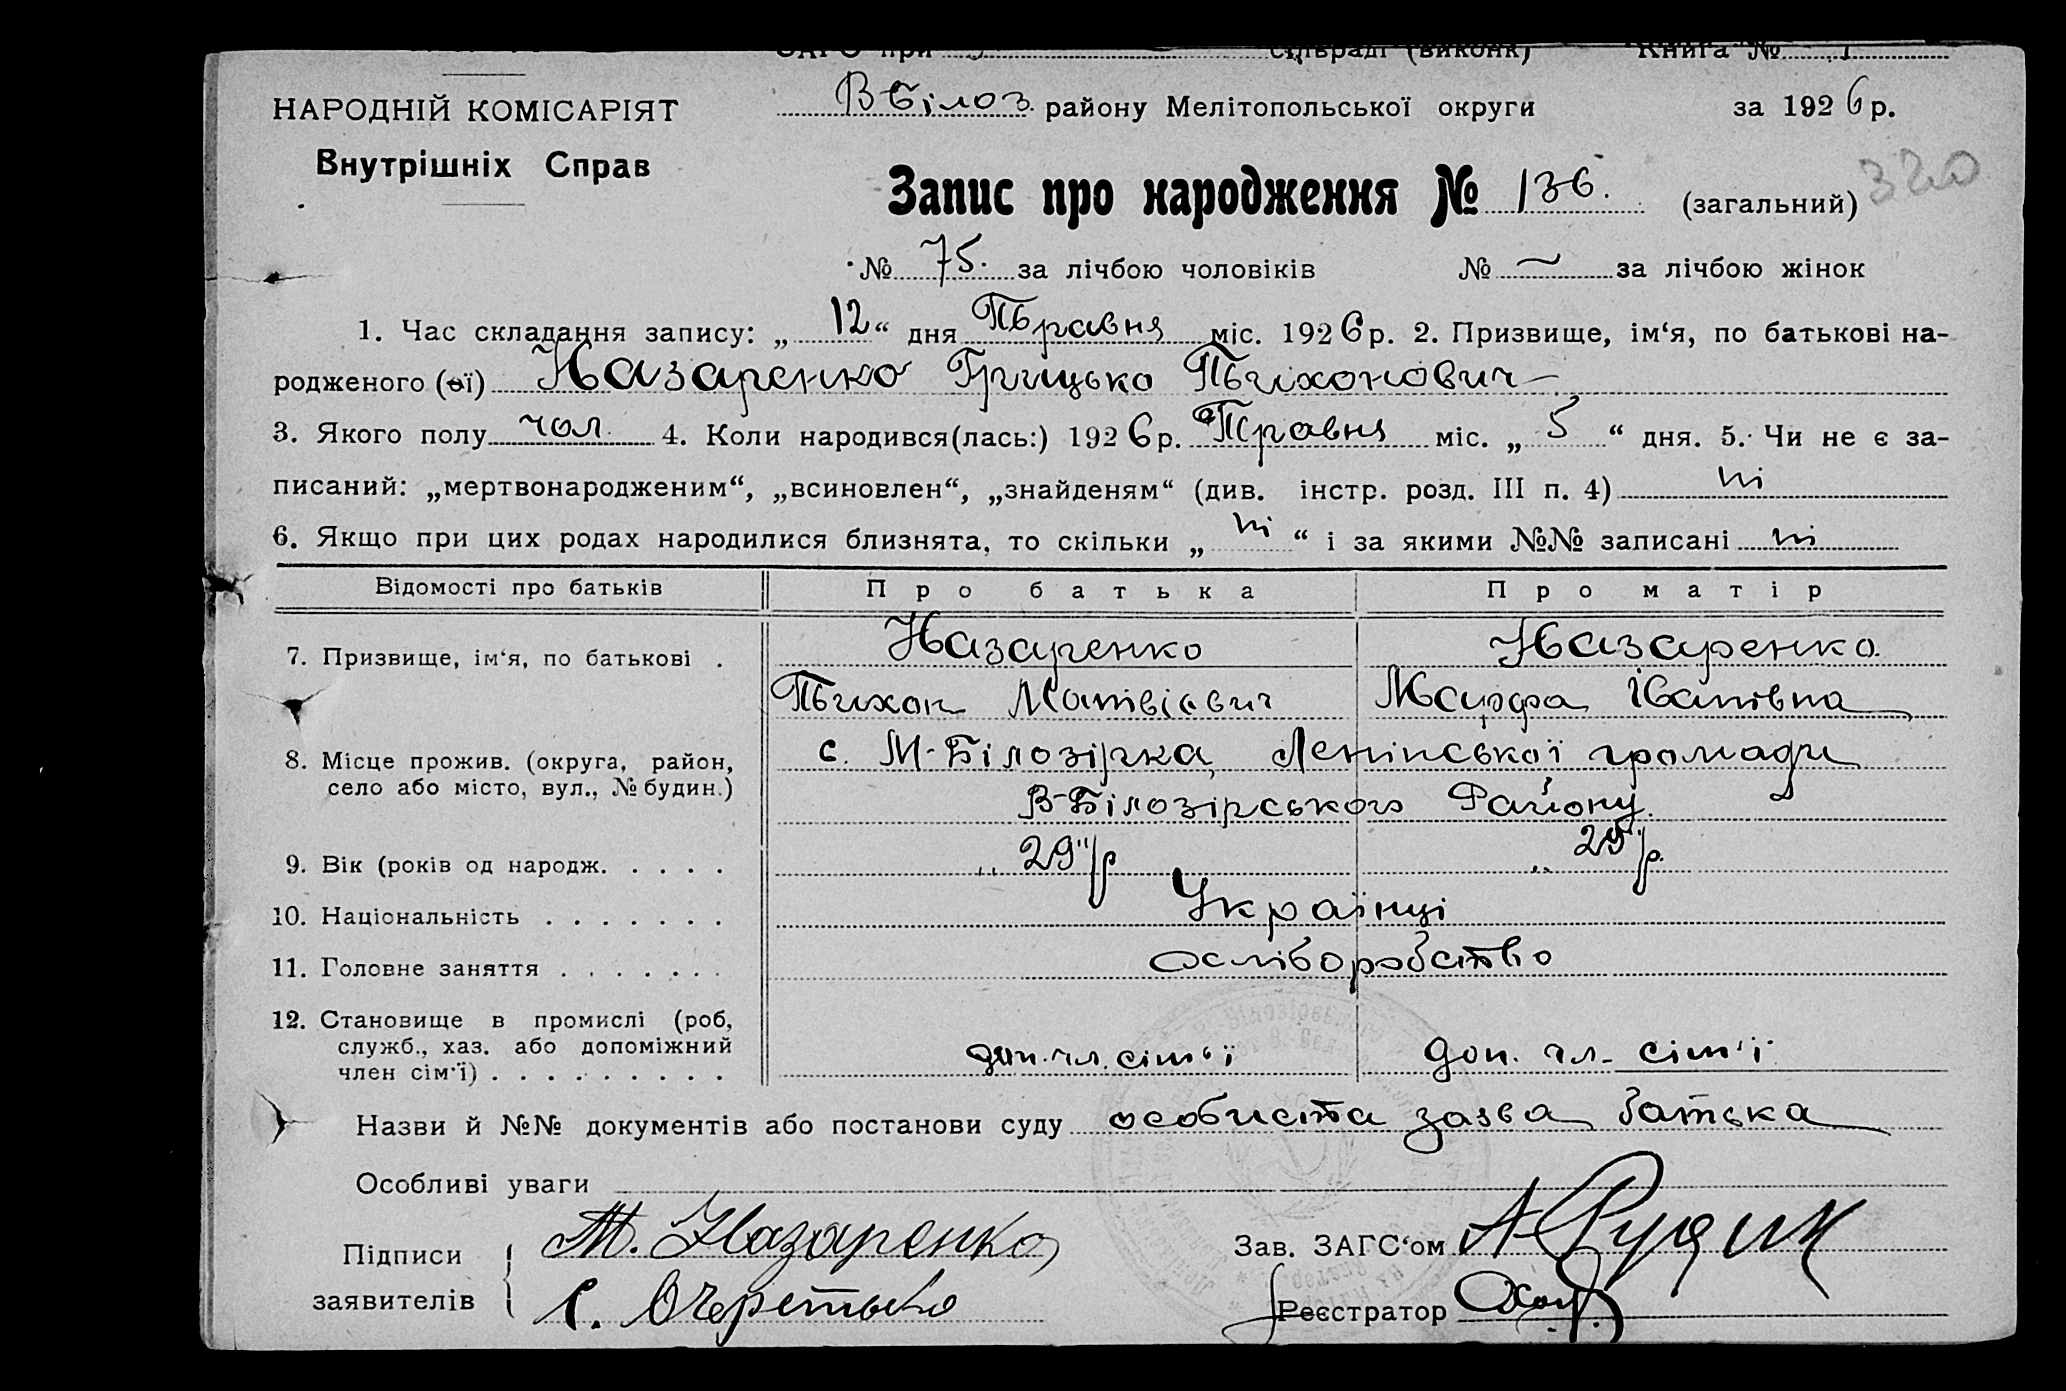 ЗАГС при сільраді (виконк) Книга № 1
НАРОДНІЙ КОМІСАРІЯТ
Внутрішніх Справ
В Білоз. району Мелітопольської округи за 1926 р.
Запис про народження № 136. (загальний) 320
№ 75. за лічбою чоловіків № — за лічбою жінок
1. Час складання запису: „ 12 “ дня Травня міс. 1926 р. 2. Призвище, ім‘я, по батькові на-
родженого (ої) Назаренко Грицько Тихонович —
3. Якого полу чол. 4. Коли народився(лась:) 1926 р. Травня міс. „ 5 “ дня. 5. Чи не є за-
писаний: „мертвонародженим“, „всиновлен“, „знайденям“ (див. інстр. розд. III п. 4) ні
6. Якщо при цих родах народилися близнята, то скільки „ ні “ і за якими №№ записані ні
Відомості про батьків Про батька Про матір
7. Призвище, ім‘я, по батькові . Назаренко Назаренко.
Тихон Матвієвич Марфа Іванівна
8. Місце прожив. (округа, район, село або місто, вул., № будин.) с. М-Білозірка, Ленінської громади
В-Білозірського Району.
9. Вік (років од народж. . . . . „29“ р „29“ р.
10. Національність . . . . . . . Українці
11. Головне заняття . . . . . . . хліборобство
12. Становище в промислі (роб,
служб., хаз. або допоміжний
член сім‘ї) . . . . . . . . . доп. чл. сім‘ї доп. чл. сім‘ї
Назви й №№ документів або постанови суду особиста заява батька
Особливі уваги
Підписи
заявителів
Т. Назаренко
С. Очеретько
Зав. ЗАГС‘ом А Рудик
Реєстратор